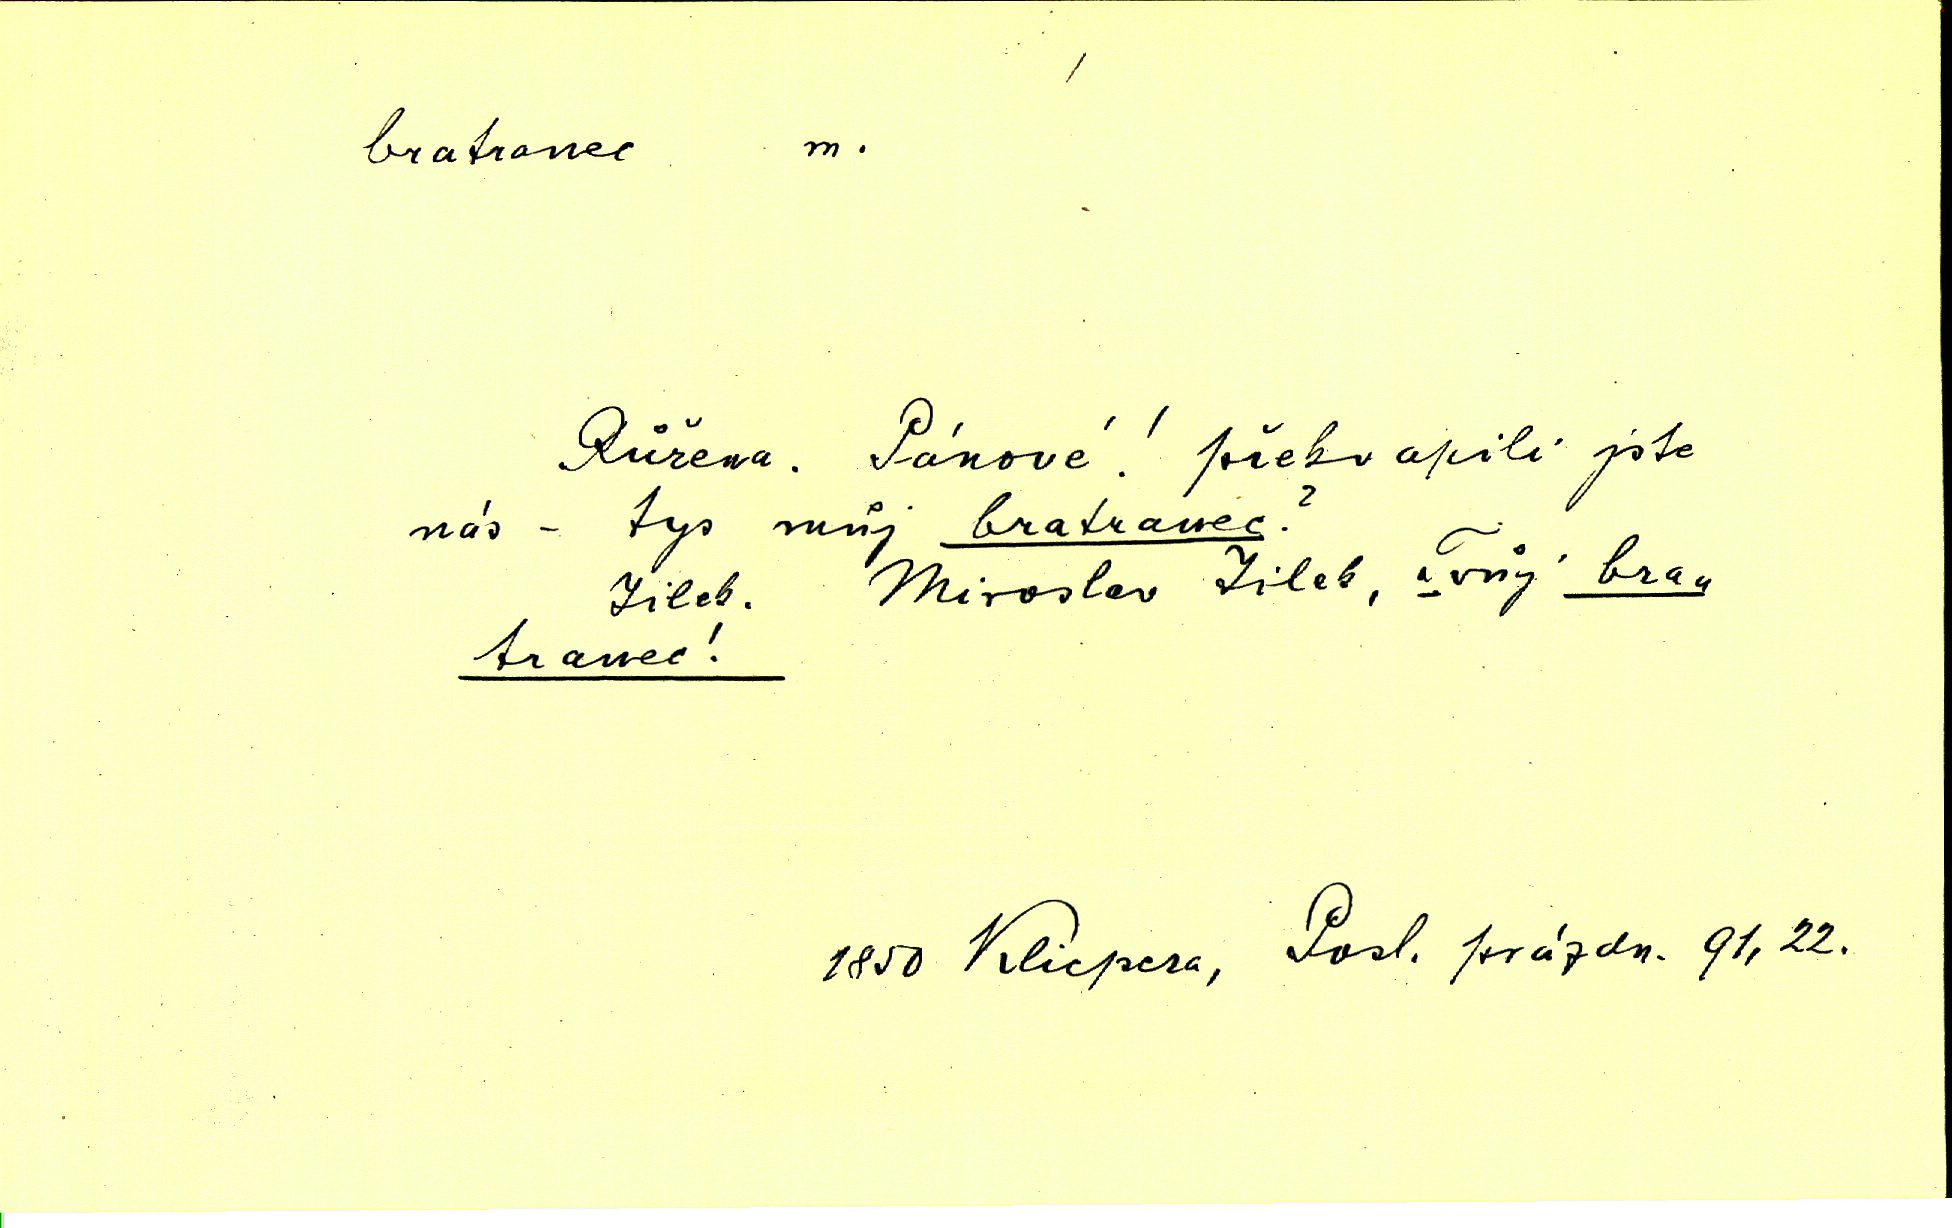 bratranec m.
Růžena. Pánové! překvapili jste
nás - tys můj bratranec?
Jilek. Miroslav Jilek, Tvůj bra„
tranec!
1850 Klicpera, Posl. prázdn. 91, 22.